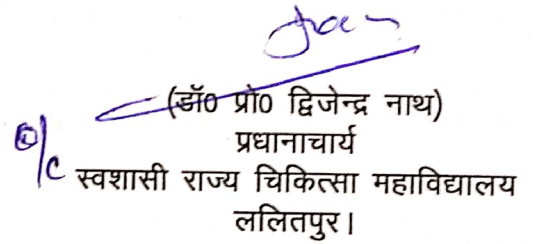 (डॉ0 प्रो0 द्विजेन्द्र नाथ)
प्रधानाचार्य
O/C
स्वशासी राज्य चिकित्सा महाविद्यालय
ललितपुर।